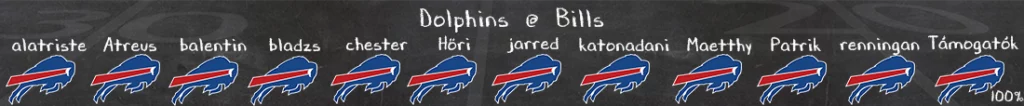 Dolphins @ Bills
alatriste Atreus balentin bladzs chester Höri jarred katonadani Maetthy Patrik renningan Támogatók
100%